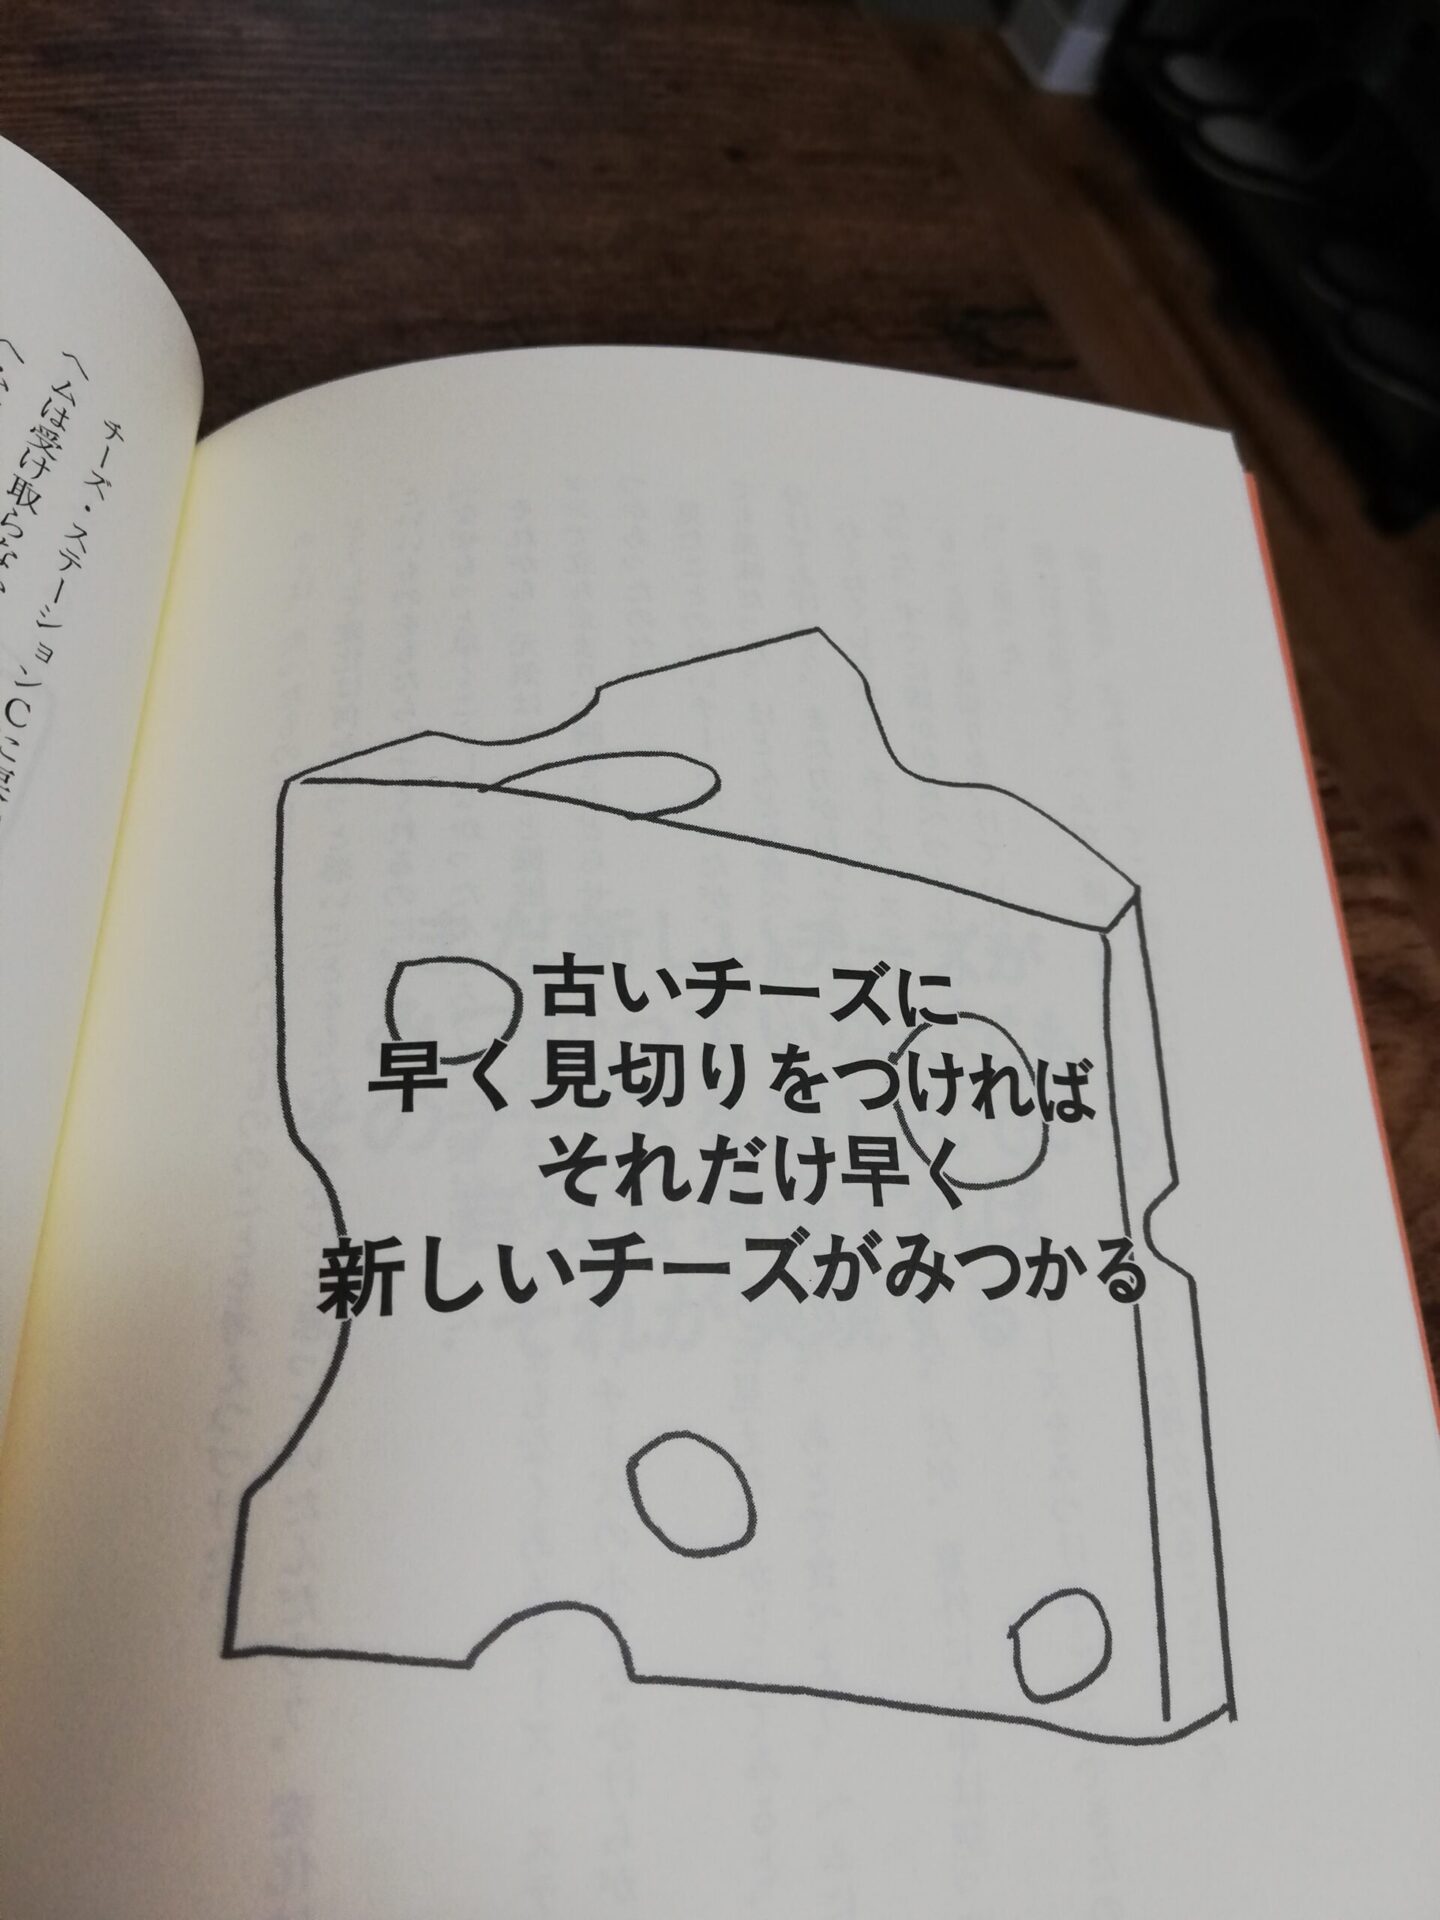 古いチーズに
早く見切りをつければ
それだけ早く
新しいチーズがみつかる
チーズ・ステーションCに
ヘムは受け取らな